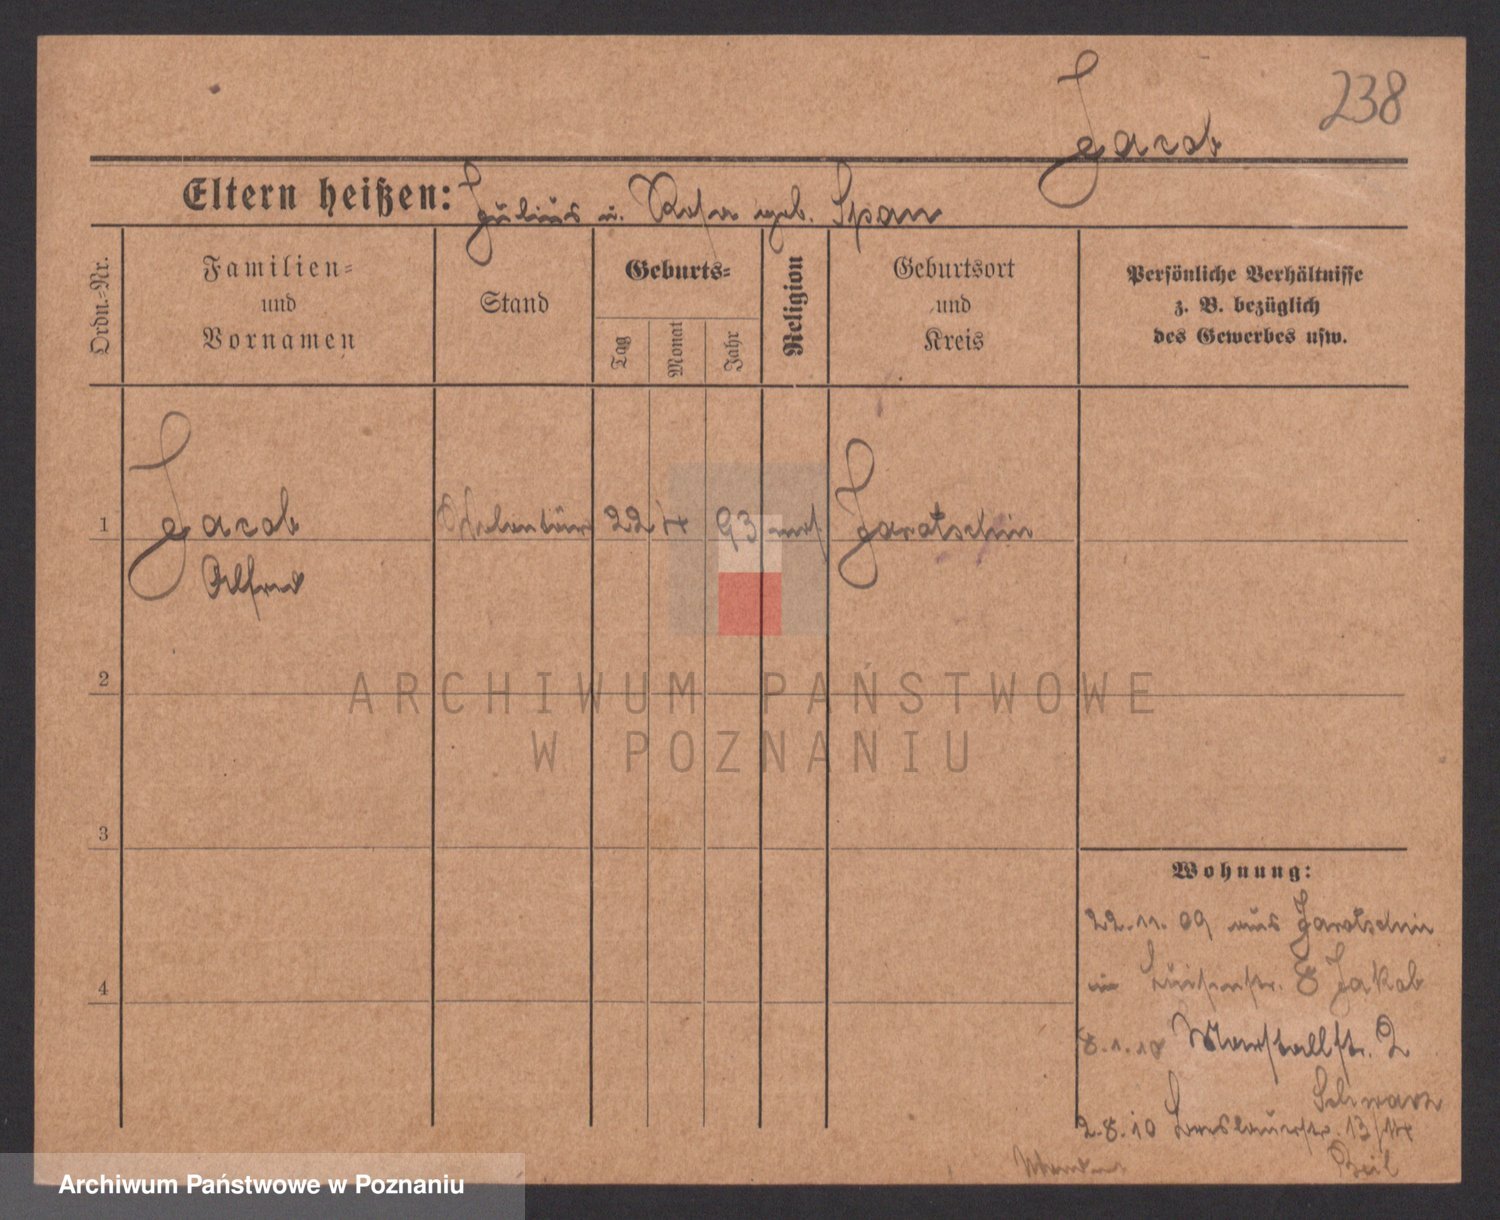 238
Jacob
Eltern heißen: Julius u. Rosa geb. Span
Ordn.-Nr.
Familien-
und
Vornamen
Stand
Geburts-
Tag
Monat
Jahr
Religion
Geburtsort
und
Kreis
Persönliche Verhältnisse
z. B. bezüglich
des Gewerbes usw.
1
Jacob 22 4 93 mos Jarotschin
Alfred
2
3
4
Wohnung:
22.11.09 aus Jarotschin
in Luisenstr. 8 Jakob
8.1.10 Marstallstr. 2
Schwarz
2.8.10 Breslauerstr. 13/14
Beil
ARCHIWUM PAŃSTWOWE
W POZNANIU
Archiwum Państwowe w Poznaniu